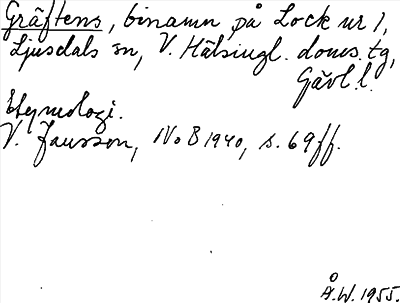 Gräftens, binamn på Lock nr 1,
Ljusdals sn, V. Hälsingl. doms. tg,
Gävl. l.
Etymologi.
V. Jansson, NoB 1940, s. 69 ff.
Å.W. 1955.